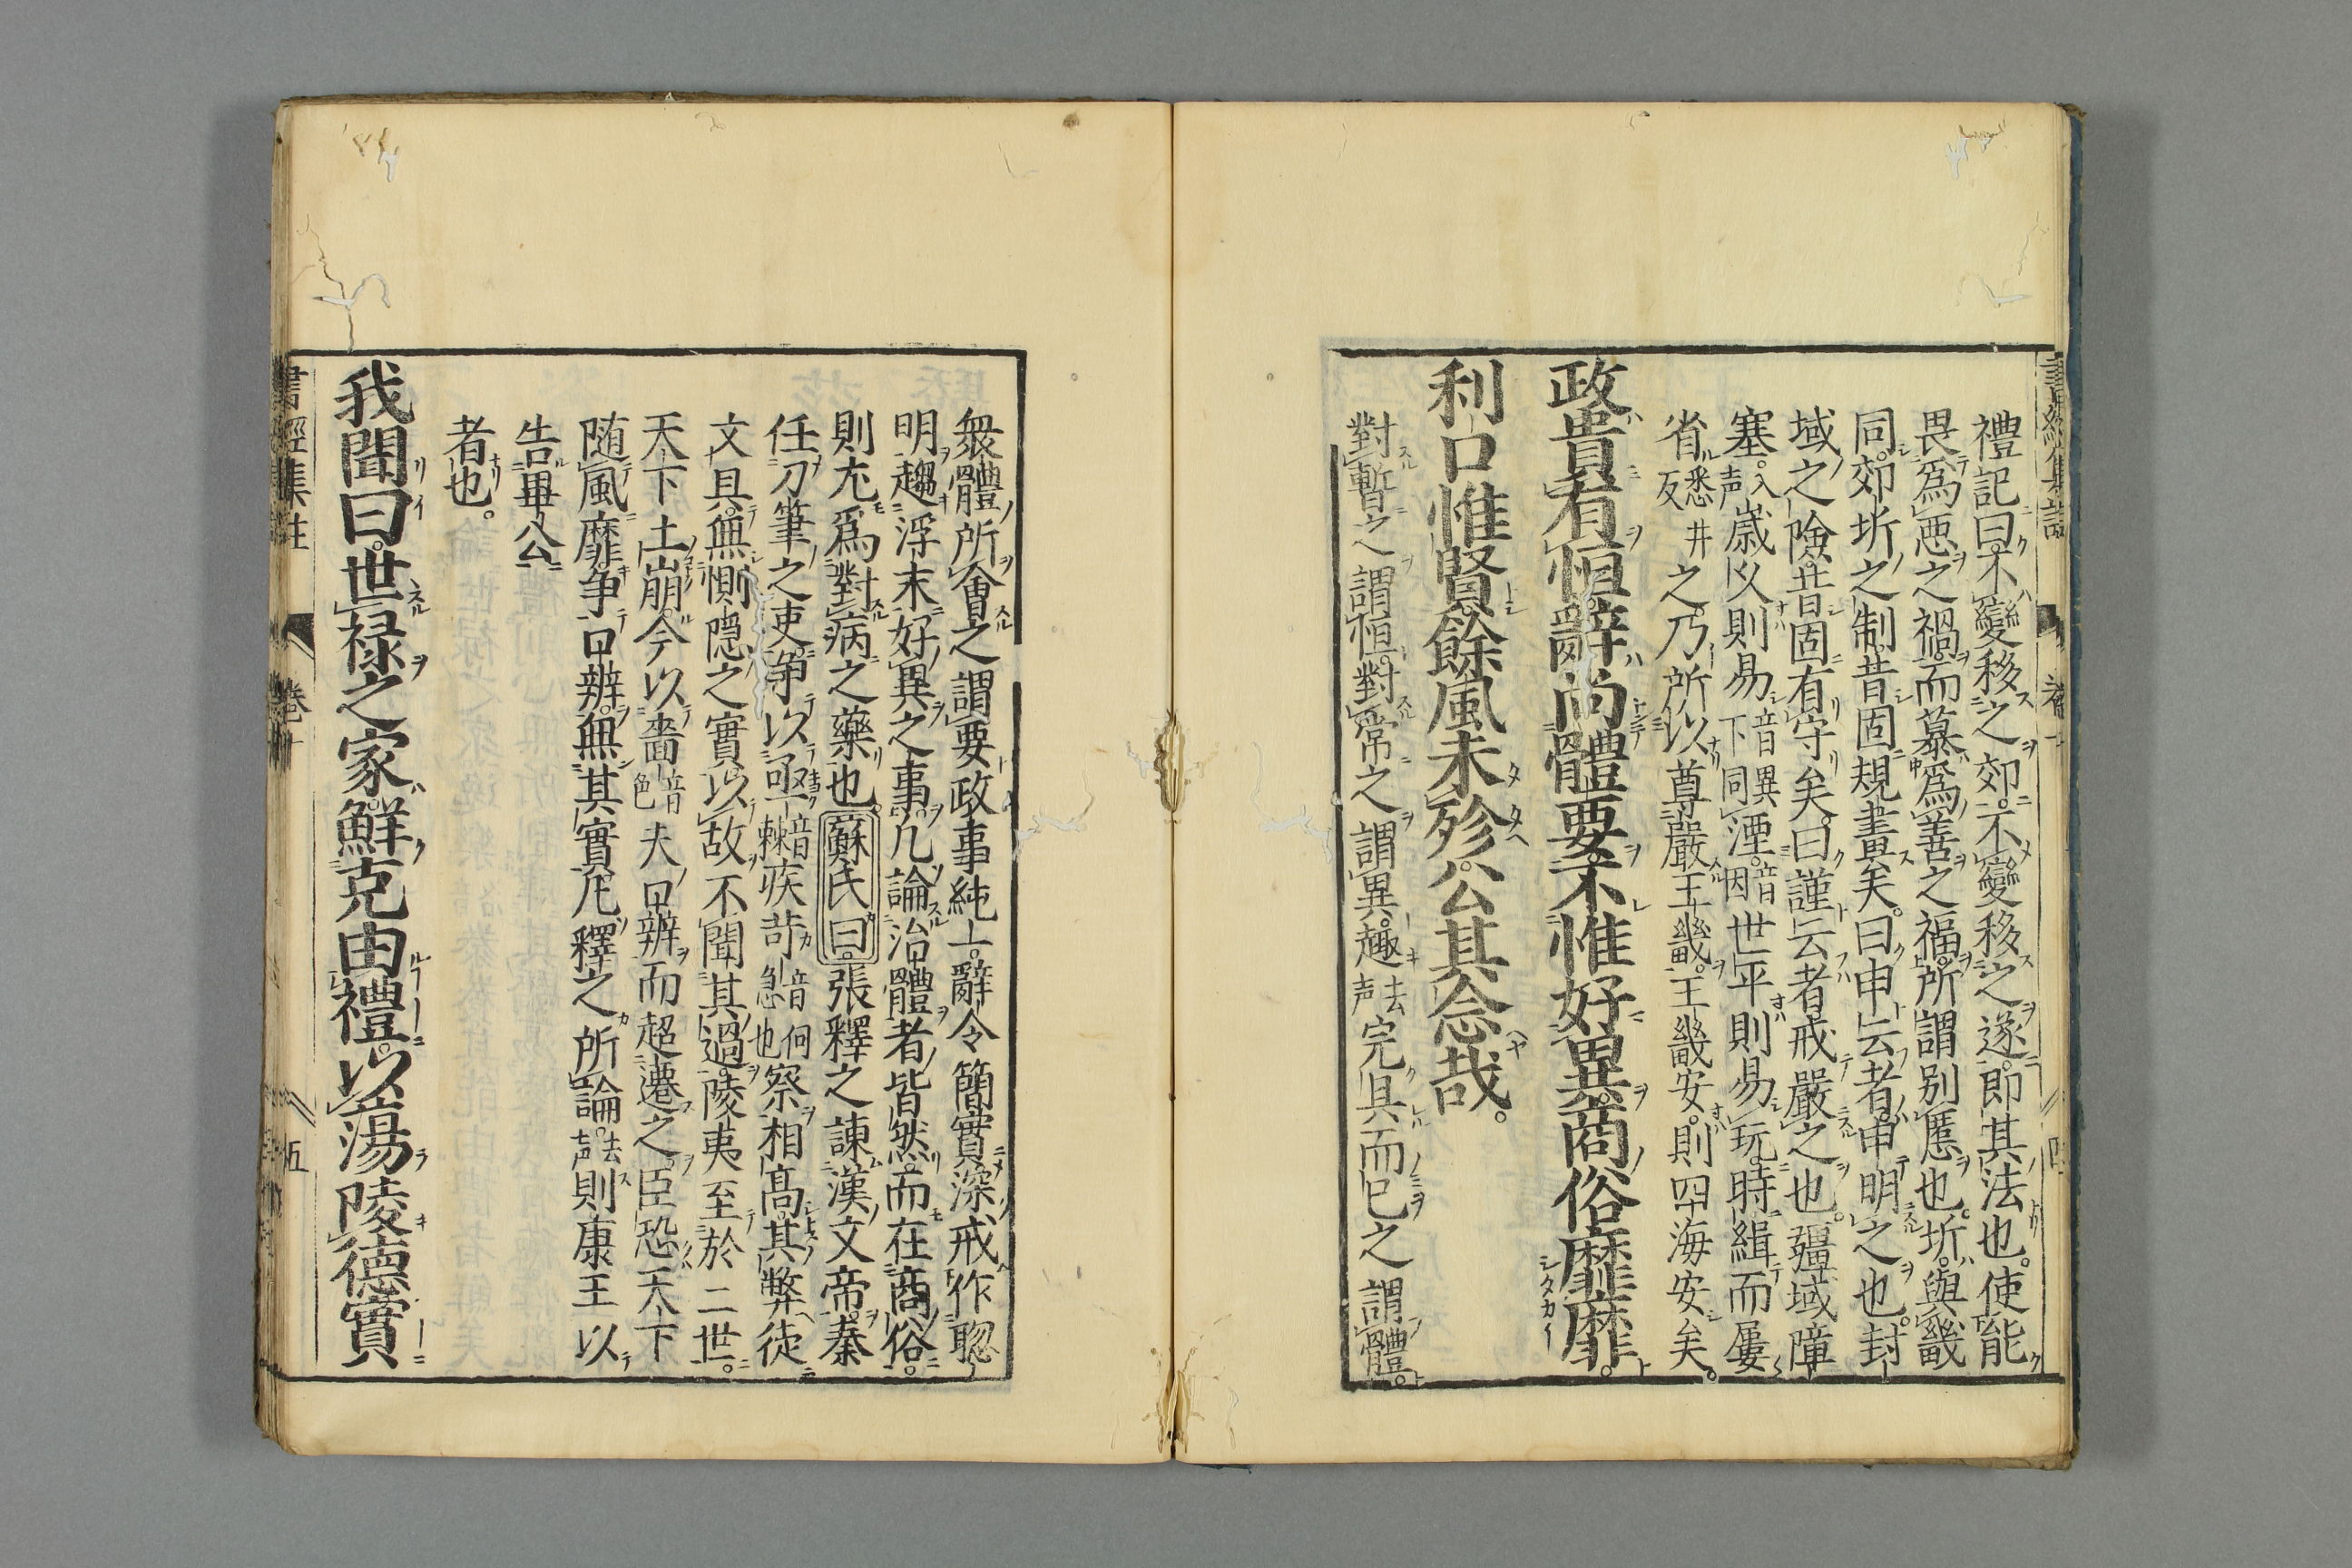 禮記曰不變移之郊。不變移之遂。即其法也。使能
畏爲惡之禍。而慕爲善之福。所謂別慝也。圻。與畿
同。郊圻之制。昔固規畫矣。曰申云者。申明之也。封
域之險。昔固有守矣。曰謹云者。戒嚴之也。疆域障
塞。入声歲久則易音異下同湮。音因世平則易玩。時緝而屢
省悉井反之。乃所以尊嚴王畿。王畿安。則四海安矣。
政貴有恒。辭尚體要。不惟好異。商俗靡靡。
利口惟賢。餘風未殄。公其念哉。
對暫之謂恒。對常之謂異。趣去声完具而已之謂體。
衆體所會之謂要。政事純一。辭令簡實。深戒作聰
明。趨浮末。好異之事。凡論治體者。皆然。而在商俗。
則尢爲對病之藥也。蘇氏曰。張釋之諫漢文帝。秦
任刀筆之吏。爭以亟音棘疾苛音何急也察相高。其弊徒
文具。無惻隱之實。以故不聞其過。陵夷至於二世。
天下土崩。今以嗇音色夫口辨。而超遷之。臣恐天下
随風靡。争口辨。無其實。凡釋之所論。去声則康王以
告畢公
者也。
我聞曰。世禄之家。鮮克由禮。以蕩陵德。實
書經集註
卷十
五